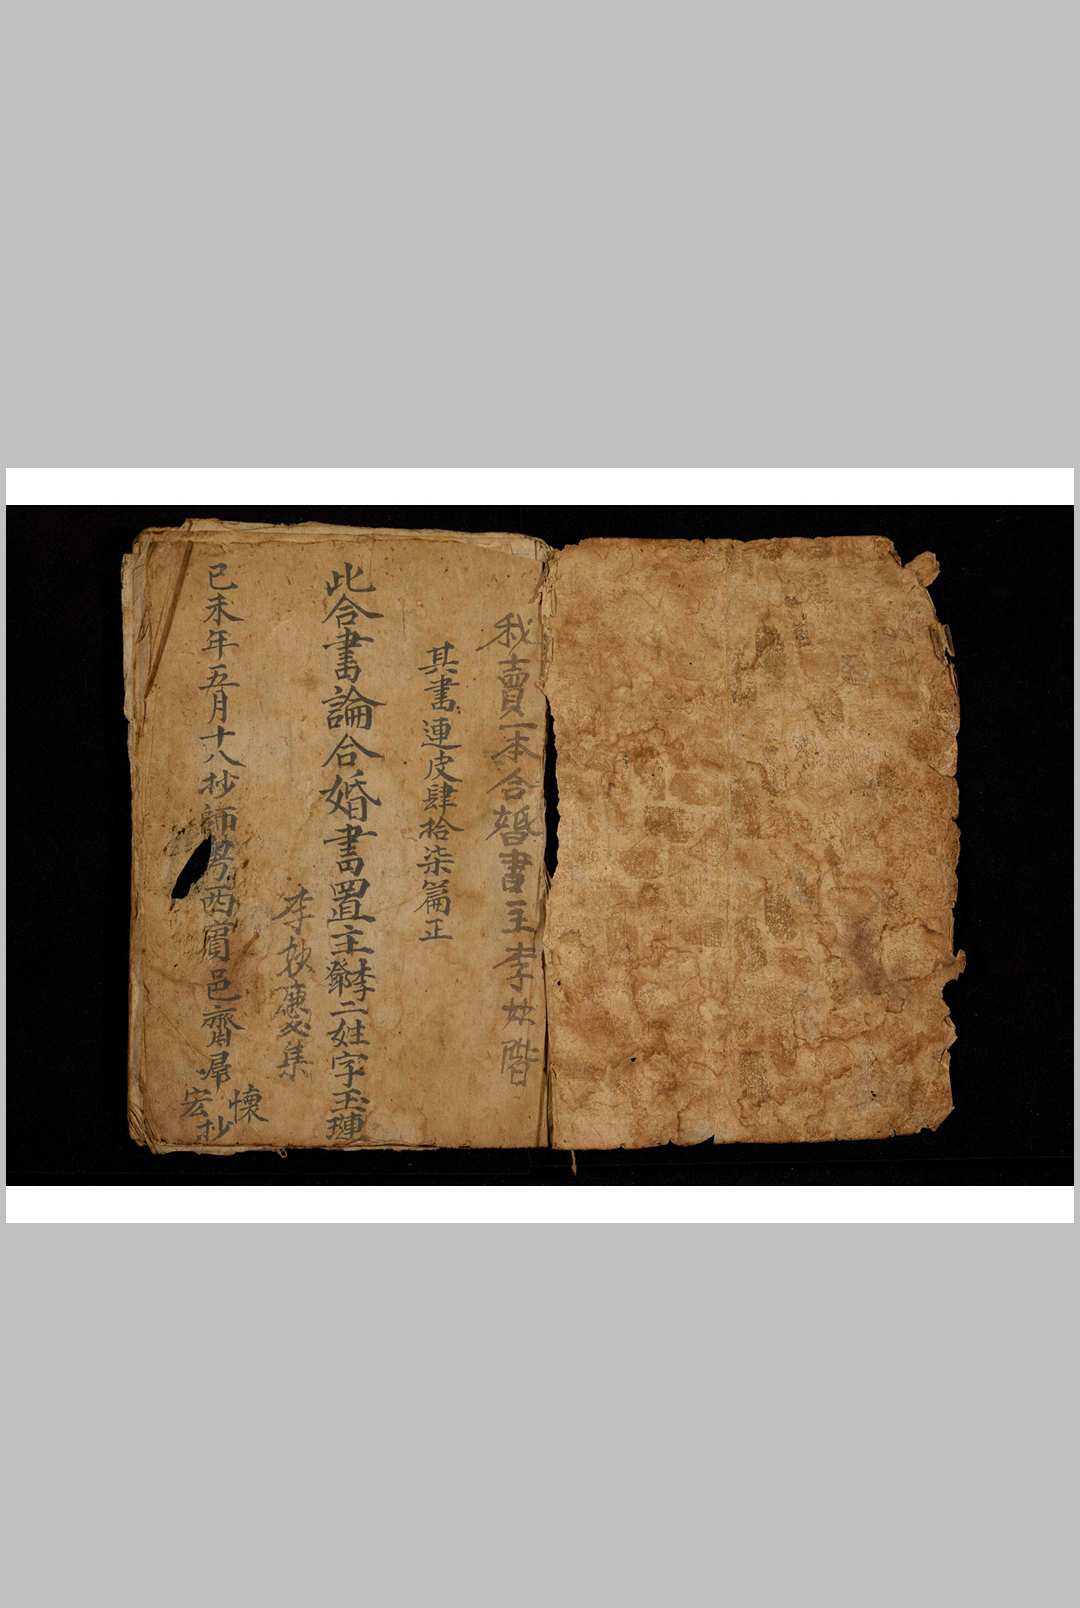 我賣一本合婚書主李
階
其書連皮肆拾柒篇正
此合書論合婚書置主李鄧二姓字玉璉
李
集
己未年五月十八抄師
西賔邑齋
懷宏抄